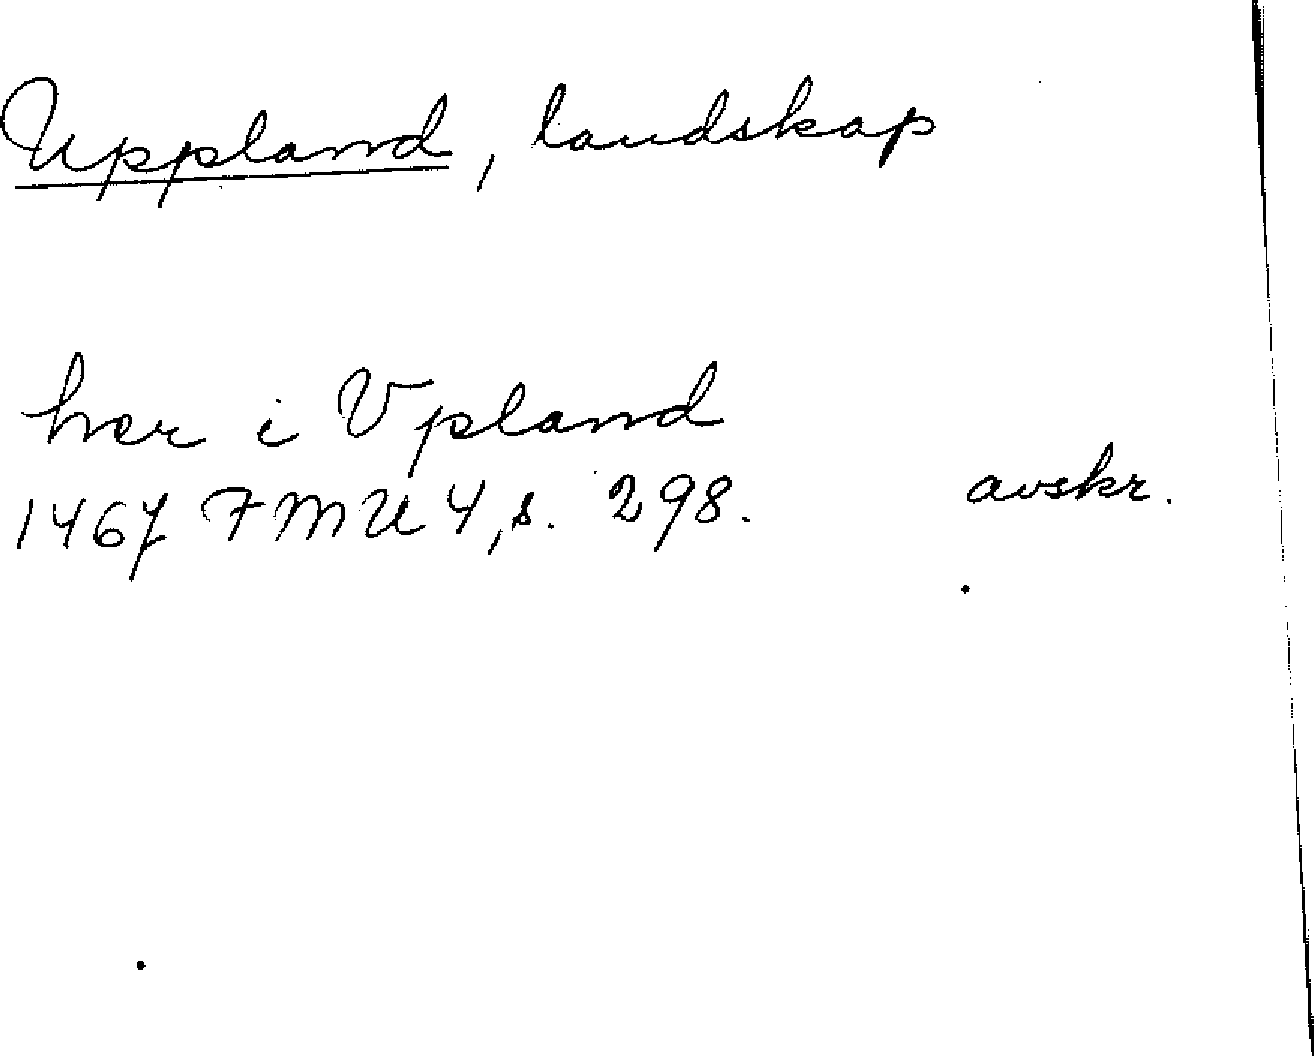 Uppland, landskap
her i Vpland
1467 FMU 4, s. 298. avskr.